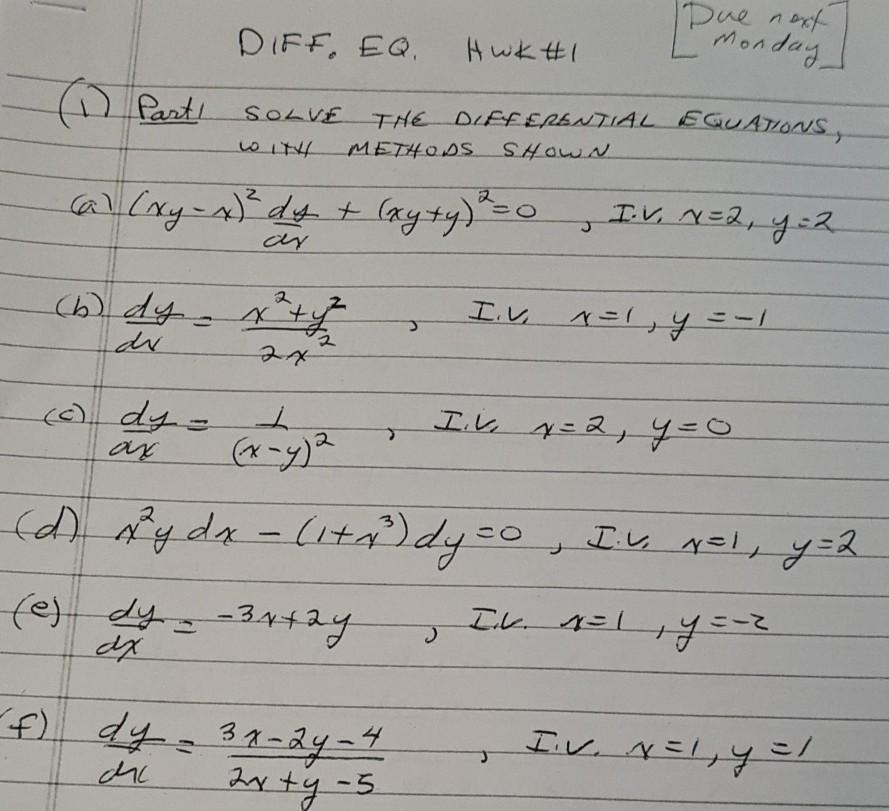 DIFF. EQ. HWK #1
[Due next
Monday]
(1) Part 1 SOLVE THE DIFFERENTIAL EQUATIONS,
WITH METHODS SHOWN
(a) (xy-x)² dy/dx + (xy+y)² = 0 , I.V. x=2, y=2
(b) dy/dx = (x²+y²)/(2x²) , I.V. x=1, y=-1
(c) dy/dx = 1/(x-y)² , I.V. x=2, y=0
(d) x²y dx - (1+x³) dy = 0 , I.V. x=1, y=2
(e) dy/dx = -3x+2y , I.V. x=1, y=-2
(f) dy/dx = (3x-2y-4)/(2x+y-5) , I.V. x=1, y=1